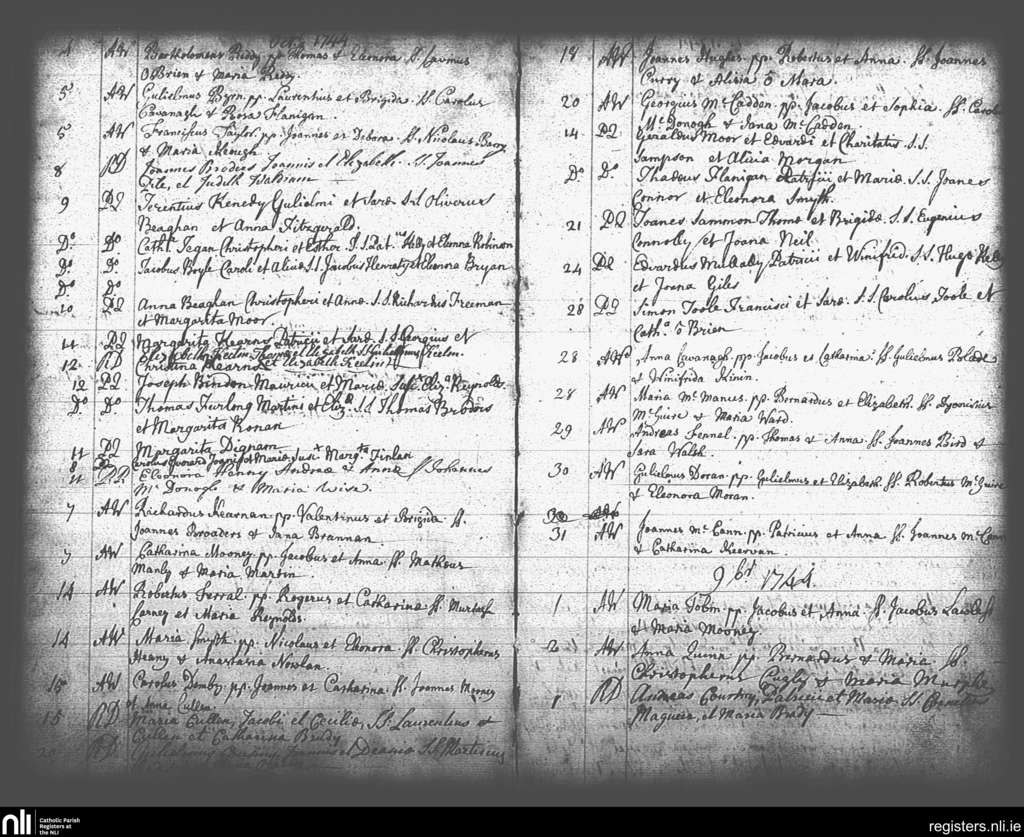 Octr 1744
4 AW Bartholomeus Reddy pp Thomas & Eleonora SS Laurnus
OBrien & Maria Reddy
5 AW Gulielmus Byrn pp. Laurentius et Brigida. SS Carolus
Cavanagh & Rosa Flanigan.
5 AW Franciscus Taylor. pp. Joannes et Debora. SS. Nicolaus Barry
& Maria Keough.
8 RD Joannes Joannis et Elizabeth. SS Joannes
et Judith
9 PL Terentius Kenedy Gulielmi et Saræ S.S. Oliverus
Beaghan et Anna Fitzgerald.
Do Do Cathna Fagan Christopheri et Esther. S.S. Patus Kelly et Elenora Robinson
Do Do Jacobus Boyle Caroli et Aliciæ S.S Jacobus et Elenora Bryan
Do Do
10 PL Anna Beaghan Christopheri et Annæ. S.S. Richardus Freeman
et Margarita Moor.
11 PL Margarita Kearns Patricii et Saræ. S.S. Georgius et
12 RD Elizabetha Keelm. Thomæ et Elizabeth SS Gulielmus Keelm.
Christina Kearns et Elizabeth Keelm
12 PL Joseph Bindon Mauricii et Mariæ. Eliz Reynolds.
Do Do Thomas Furlong Martini et Eliz. S.S. Thomas Broders
et Margarita Ronan
11 PL Margarita Dignam
8 Carolus Joannis et Mariæ Margta Finlan
11 RD Eleonora Hanny Andreæ & Anna SS Johannes
Mc Donogh & Maria Wise.
7 AW Richardus Kearnan pp. Valentinus et Brigida SS.
Joannes Broaders & Jana Brannan
9 AW Catharina Mooney pp. Jacobus et Anna SS. Matheus
Manly & Maria Martin
14 AW Robertus Ferral pp. Rogerus et Catharina SS. Murtagh
Carney et Maria Reynolds.
14 AW Maria Smyth pp. Nicolaus et Elionora SS Christopherus
Heany & Anastasia Nowlan.
15 AW Carolus Demby. pp. Joannes et Catharina SS. Joannes Morney
& Anna Cullen.
15 RD Maria Cullen, Jacobi et Ceciliæ, SS: Laurentius &
Cullen et Catharina Brady
RD SS Martinus
19 AW Joannes Hughes. pp. Robertus et Anna. SS. Joannes
Curry & Alisia O Mara.
20 AW Georgius McCadden. pp. Jacobus et Sophia. SS. Carol
McDonogh & Jana McCadden.
14 PL Geraldus Moor et Edvardi et Charitatis S.S.
Sampson et Alicia Morgan
Do Do Thadeus Flanigan Patricii et Mariæ S.S. Joanes
Connor et Eleonora Smyth.
21 PL Joanes Sammon Thomæ et Brigidæ S.S. Eugenius
Connolly et Joana Neil.
24 PL Edvardus Mullally Patricii et Winifrid. S.S. Hugo Kelly
et Joana Giles
28 PL Simon Toole Francisci et Saræ. S.S. Carolus Toole et
Catha O Brien
28 AW Anna Cavanagh. pp. Jacobus et Catharina. SS. Gulielmus
& Winifrida
28 AW Maria McManus. pp. Bernardus et Elizabeth. SS. Dyonisius
McGuire & Maria Ward.
29 AW Andreas Fennel. pp. Thomas & Anna SS. Joannes Bird &
Sara Walsh.
30 AW Gulielmus Doran. pp. Gulielmus et Elizabeth. SS. Robertus McGuire
& Eleonora Moran.
30 AW
31 AW Joannes McCann. pp. Patricius et Anna SS. Joannes McCann
& Catharina Keervan
9br 1744
1 AW Maria Tobin. pp. Jacobus et Anna. SS. Jacobus Lawless
& Maria Mooney.
2 AW Anna Quinn pp. Bernardus & Maria SS.
Christopherus & Maria Murphy
1 RD Andreas Courtny, Patricii et Mariæ SS. Cornelius
Maguein, et Maria Brady
nli Catholic Parish
Registers at
the NLI
registers.nli.ie